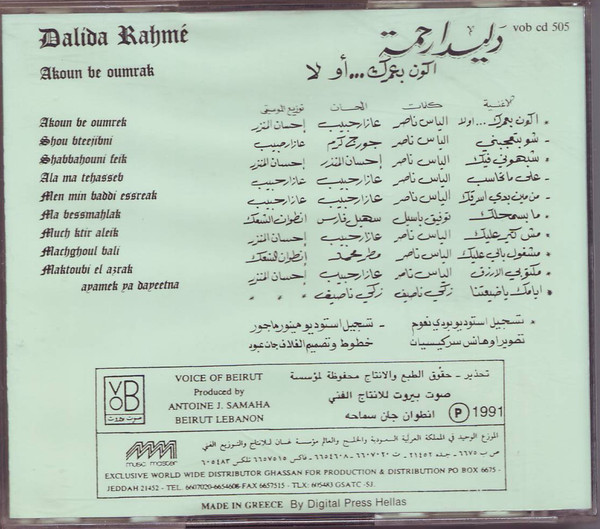 Dalida Rahmé
دليدا رحمة
vob cd 505
Akoun be oumrak
اكون بعمرك...أو لا
الاغنية كلمات الحان توزيع الموسيقى
Akoun be oumrek
اكون بعمرك...اولا الياس ناصر عازار حبيب إحسان المنذر
Shou bteejibni
شو بتعجبني الياس ناصر جورج كرم عازار حبيب
Shabbahouni feik
شبهوني فيك الياس ناصر إحسان المنذر إحسان المنذر
Ala ma tehasseb
على ما تحاسب الياس ناصر عازار حبيب عازار حبيب
Men min baddi essreak
من مين بدي اسرقك الياس ناصر عازار حبيب عازار حبيب
Ma bessmahlak
ما بسمحلك توفيق باسيل سهيل فارس انطوان الشعك
Much ktir aleik
مش كتير عليك الياس ناصر عازار حبيب إحسان المنذر
Machghoul bali
مشغول بالي عليك الياس ناصر مطر محمد انطوان الشعك
Maktoubi el azrak
مكتوبي الازرق الياس ناصر عازار حبيب إحسان المنذر
ayamek ya dayeetna
ايامك يا ضيعتنا زكي ناصيف زكي ناصيف " "
تسجيل استوديو بودي نعوم - تسجيل استوديو
تصوير اوهانس سركيسيان خطوط وتصميم الغلاف جان عبود
VOB
صوت بيروت
VOICE OF BEIRUT
Produced by
ANTOINE J. SAMAHA
BEIRUT LEBANON
تحذير - حقوق الطبع والانتاج محفوظة لمؤسسة
صوت بيروت للانتاج الفني
انطوان جان سماحه
P 1991
music master
الموزع الوحيد في المملكة العربية السعودية والخليج والعالم مؤسسة غسان للانتاج والتوزيع الفني
ص ب ٦٦٧٥ جدة ٢١٤٥٢ - ت ٦٦٠٧٠٢٠ - ٦٦٥٤٦٠٨ - فاكس ٦٦٥٧٥١٥ تلكس ٦٠٥٤٨٣
EXCLUSIVE WORLD WIDE DISTRIBUTOR GHASSAN FOR PRODUCTION & DISTRIBUTION PO BOX 6675 -
JEDDAH 21452 - TEL. 6607020-6654608-FAX 6657515 - TLX: 605483 GSATC -SJ.
MADE IN GREECE By Digital Press Hellas